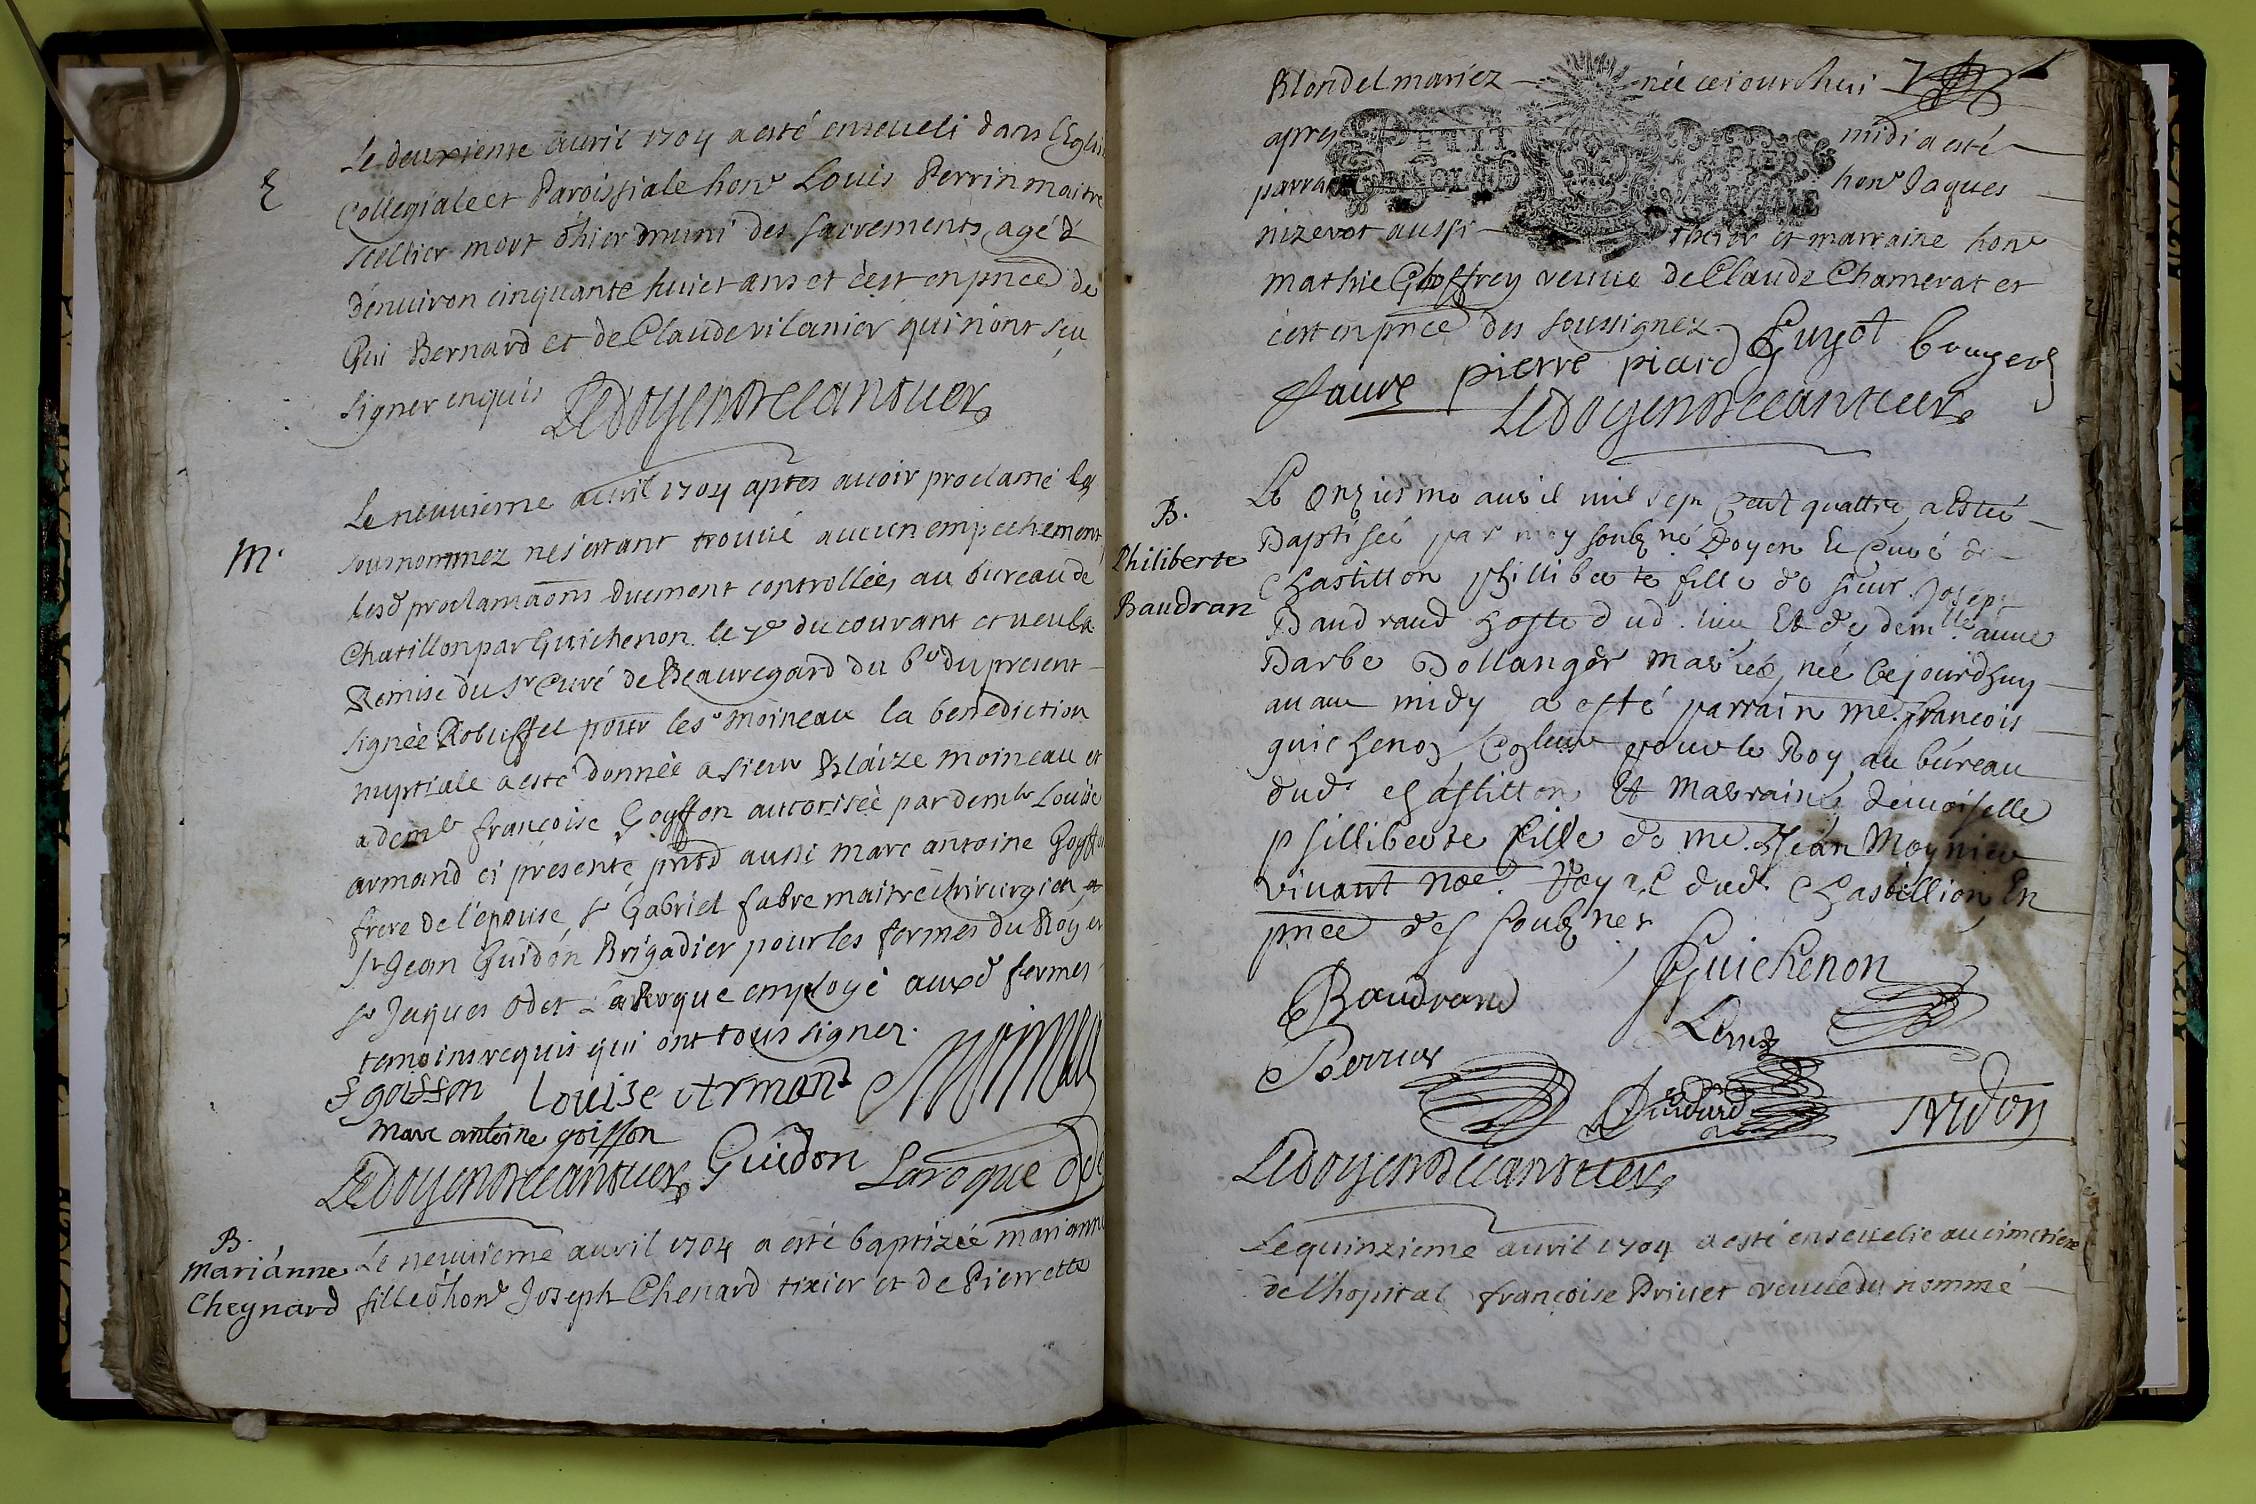 E
Le deuxieme avril 1704 a esté enseueli dans l'Eglise
Collegiale et Paroissiale hon^e Louis Perrin maitre
scellier mort hier muni des sacrements agé
d'enuiron cinquante huict ans et c'est en pñce de
Gui Bernard et de Claude vilanier qui n'ont sçu
signer enquis
Ledoyen
M.
Le neuuieme auril 1704 apres auoir proclamé les
sousnommez ne s'estant trouué aucun empechement,
lesd proclamaõns duement controllées au bureau de
Chatillon par Guichenon le 7^e du courant et ueu la
Remise du S^r Curé de Beauregard du 6^e du present
signée Robuffel pour le s^r moineau la benediction
nuptiale a esté donnée a sieur Blaize moineau et
a dem^le francoise Goyffon autorisée par dem^le Louise
armand ci presente pñtd aussi marc antoine Goyffon
frere de l'epouse, s^r Gabriel fabre maitre chirurgien et
s^r Jean Guidon Brigadier pour les fermes du Roy et
s^r Jaques Odet Laroque employé auxd fermes
temoins requis qui ont tous signez.
f goiffon Louise Armand Moineau
Marc antoine goiffon
Ledoyen Guidon Laroque Ode
B.
Marianne
Cheynard
Le neuuieme auril 1704 a esté baptizée marianne
fille d'hon^e Joseph Chenard tixier et de Pierrette
Blondel mariez née ce jourdhui 7
apres PETIT PAPIER midi a esté
parrain hon^e Jaques
nizerot aussi tixier et marraine hon^e
mathie Geoffrey veuue de Claude Chamerat et
c'est en pñce des soussignez.
faure pierre picard Guyot
Ledoyen
B.
Philiberte
Baudran
Le onziesme auril mil sept Cent quattre a Esteé
Baptiseé par moy soubzné Doyen Et Curé de
Chastillon philliberte fille de sieur Joseph
Baudrand hoste dud. lieu Et de dem^lle anne
Barbe Bollanger mariéé, neé Cejourdhuy
auant midy a esté parrain me. francois
guichenon Cogleur pour le Roy au bureau
dud^t chastillon Et Marraine demoiselle
philliberte fille de me. Jean Moynier
viuant noe. Royal dud^t Chastillion En
pñce des soubznes
Baudrand Guichenon
Perrier
Tardon
Ledoyen
Le quinzieme auril 1704 a esté enseuelie au cimetiere
de l'hopital françoise Priuet veuue du nommé